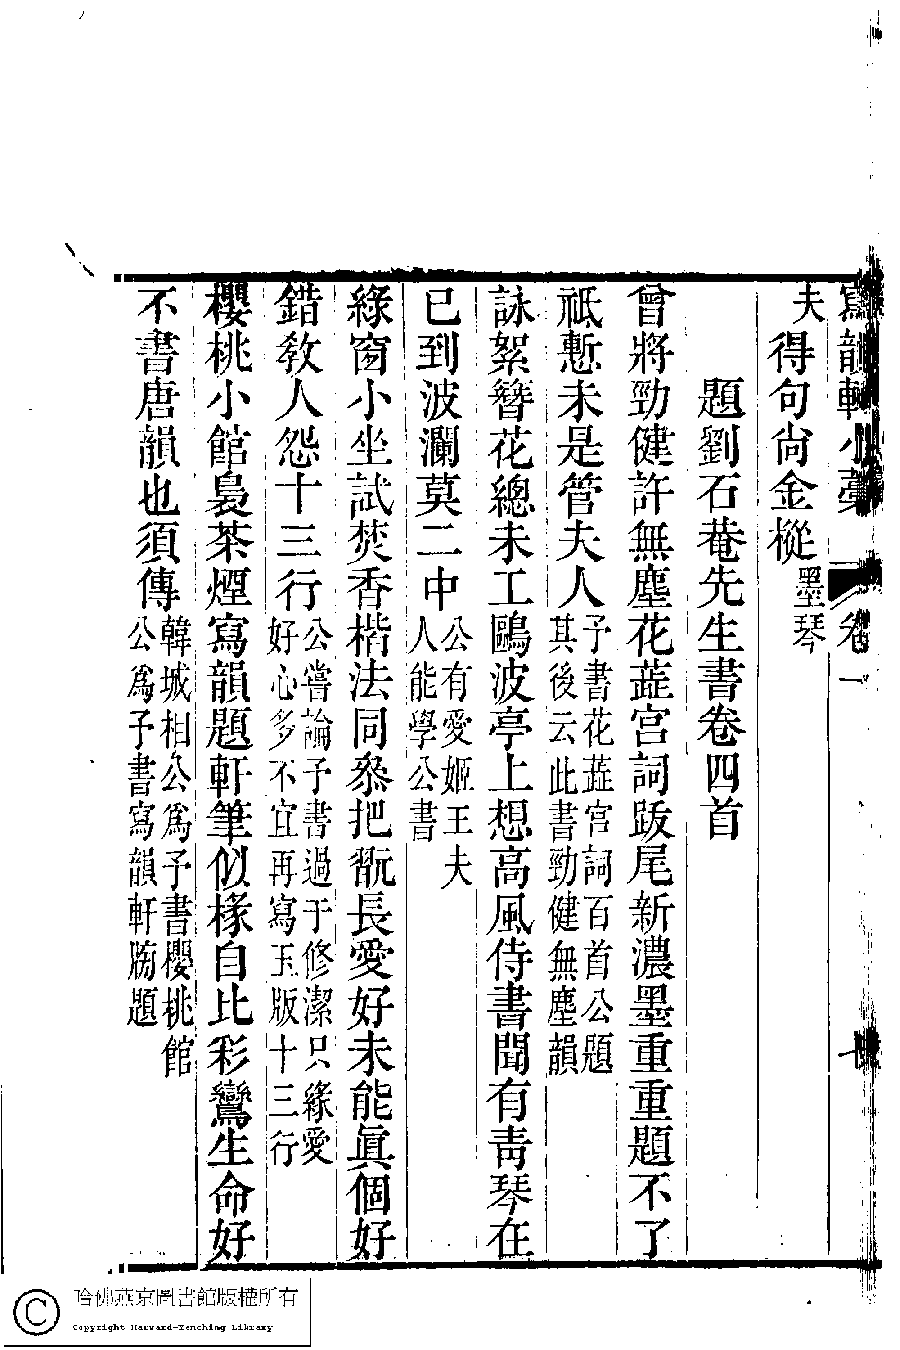 寫韻軒小藁 卷一
夫得句尙金樅墨琴
題劉石菴先生書卷四首
曾將勁健許無塵花蕋宮詞跋尾新濃墨重重題不了
祗慙未是管夫人予書花蕋宮詞百首公題其後云此書勁健無塵韻
詠絮簪花總未工鷗波亭上想高風侍書聞有靑琴在
已到波瀾莫二中公有愛姬王夫人能學公書
綠窗小坐試焚香楷法同叅把翫長愛好未能眞個好
錯敎人怨十三行公嘗論予書過于修潔只緣愛好心多不宜再寫玉版十三行
櫻桃小館裊茶煙寫韻題軒筆似椽自比彩鸞生命好
不書唐韻也須傳韓城相公爲予書櫻桃館公爲予書寫韻軒牓題
哈佛燕京圖書館版權所有
Copyright Harvard-Yenching Library